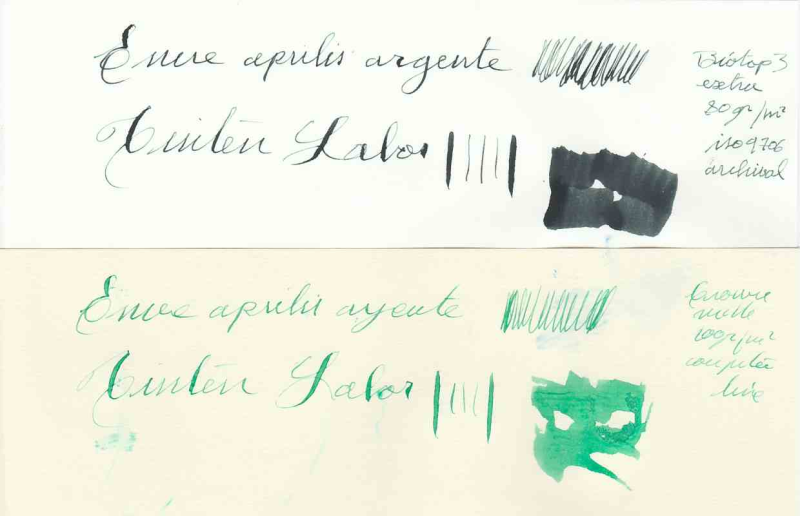 Encre aprilis argente
Tinten Labor
Biotop 3
extra
80gr/m²
iso 9706
archival
Encre aprilis argente
Tinten Labor
100gr/m²
computer
line